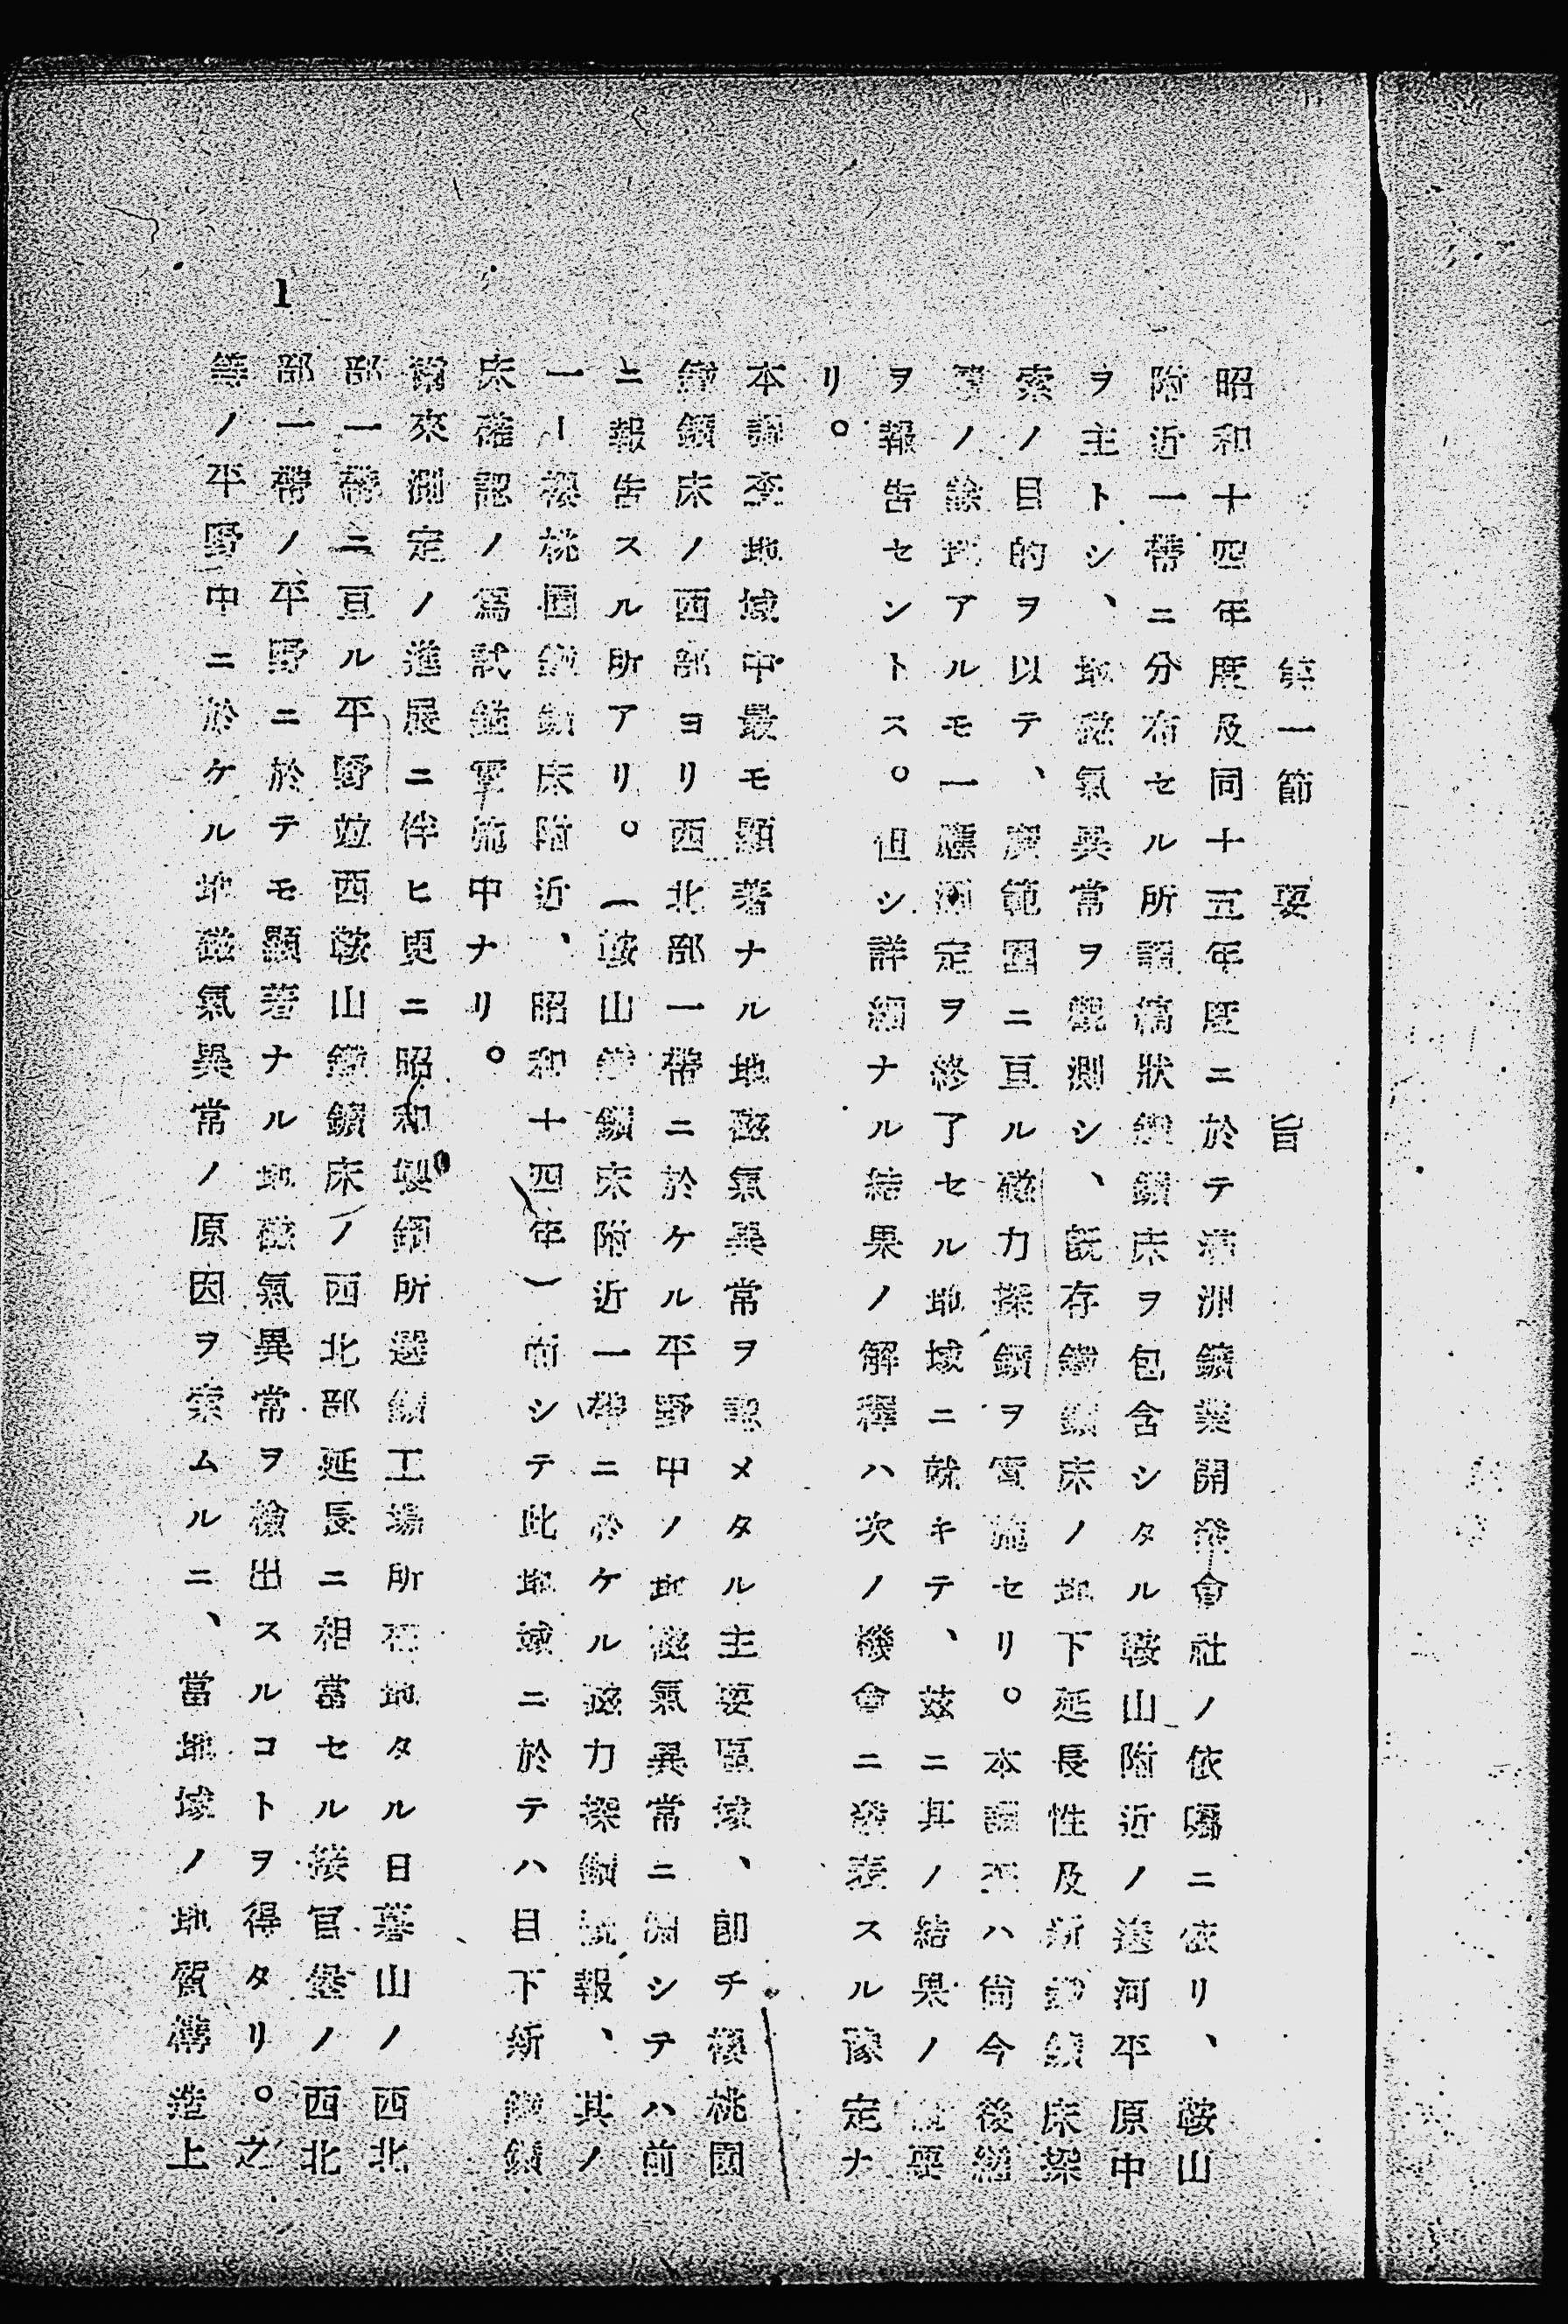 第一節　要　旨
昭和十四年度及同十五年度ニ於テ滿洲鑛業開發會社ノ依囑ニ依リ、鞍山
附近一帶ニ分布セル所謂縞狀鐵鑛床ヲ包含シタル鞍山附近ノ遼河平原中
ヲ主トシ、地磁氣異常ヲ觀測シ、旣存鐵鑛床ノ地下延長性及新鐵鑛床探
索ノ目的ヲ以テ、廣範圍ニ亘ル磁力探鑛ヲ實施セリ。本調査ハ尙今後繼
續ノ餘地アルモ一應測定ヲ終了セル地域ニ就キテ、茲ニ其ノ結果ノ要
ヲ報告セントス。但シ詳細ナル結果ノ解釋ハ次ノ機會ニ發表スル豫定ナ
リ。
本調査地域中最モ顯著ナル地磁氣異常ヲ認メタル主要區域、卽チ櫻桃園
鐵鑛床ノ西部ヨリ西北部一帶ニ於ケル平野中ノ地磁氣異常ニ關シテハ前
ニ報告スル所アリ。（鞍山鐵鑛床附近一帶ニ於ケル磁力探鑛槪報、其ノ
一－櫻桃園鐵鑛床附近、昭和十四年）而シテ此地域ニ於テハ目下新鐵鑛
床確認ノ爲試錐實施中ナリ。
爾來測定ノ進展ニ伴ヒ更ニ昭和製鋼所選鑛工場所在地タル日暮山ノ西北
部一帶ニ亘ル平野竝西鞍山鐵鑛床ノ西北部延長ニ相當セル接官堡ノ西北
部一帶ノ平野ニ於テモ顯著ナル地磁氣異常ヲ檢出スルコトヲ得タリ。之
等ノ平野中ニ於ケル地磁氣異常ノ原因ヲ索ムルニ、當地域ノ地質構造上
1